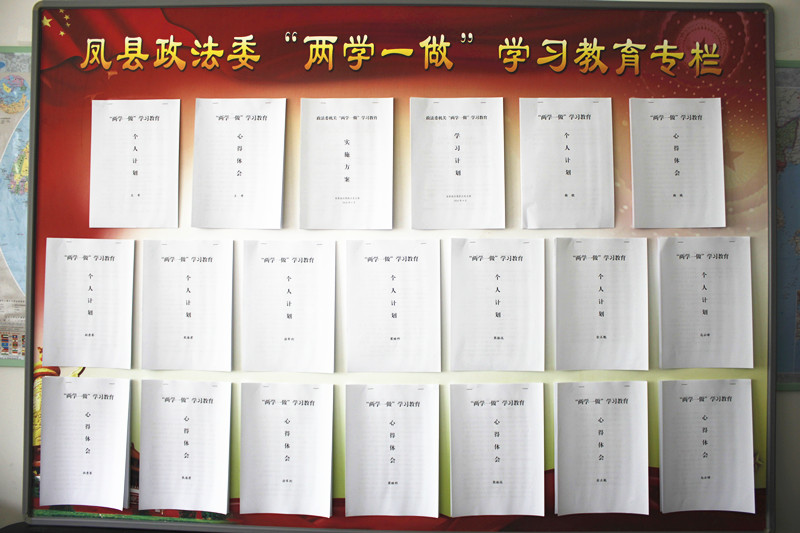 凤县政法委“两学一做”学习教育专栏
“两学一做”学习教育
个人计划
“两学一做”学习教育
心得体会
政法委机关“两学一做”学习教育
实施方案
政法委机关“两学一做”学习教育
学习计划
“两学一做”学习教育
个人计划
“两学一做”学习教育
心得体会
“两学一做”学习教育
个人计划
“两学一做”学习教育
个人计划
“两学一做”学习教育
个人计划
“两学一做”学习教育
个人计划
“两学一做”学习教育
个人计划
“两学一做”学习教育
个人计划
“两学一做”学习教育
个人计划
“两学一做”学习教育
心得体会
“两学一做”学习教育
心得体会
“两学一做”学习教育
心得体会
“两学一做”学习教育
心得体会
“两学一做”学习教育
心得体会
“两学一做”学习教育
心得体会
“两学一做”学习教育
心得体会